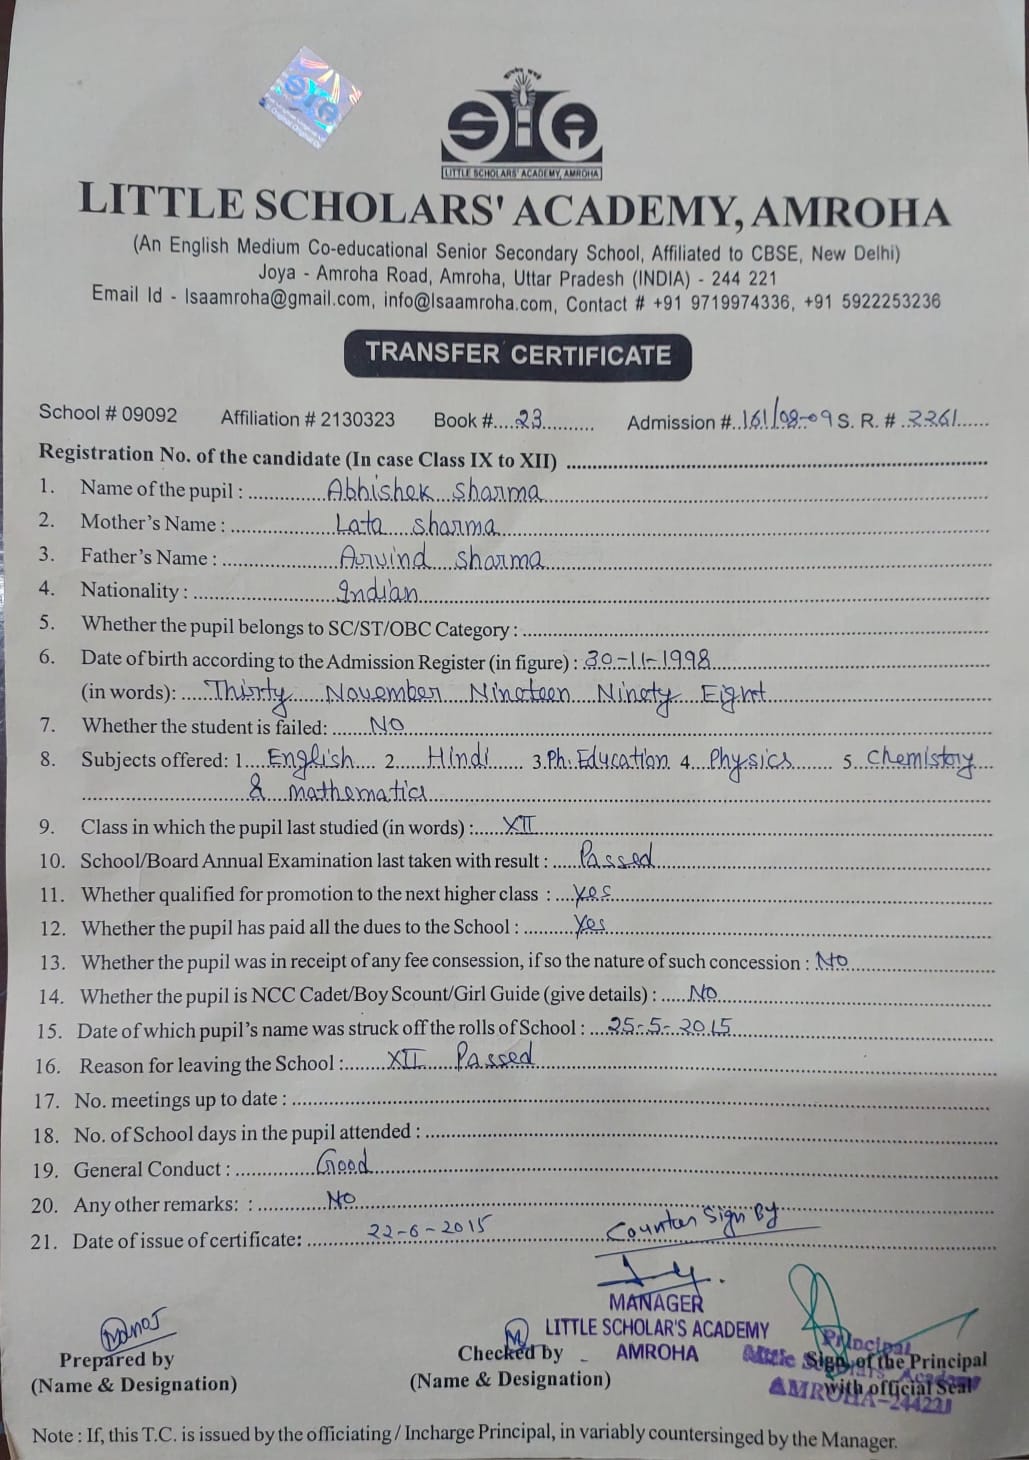 SIA
LITTLE SCHOLARS' ACADEMY, AMROHA
LITTLE SCHOLARS' ACADEMY, AMROHA
(An English Medium Co-educational Senior Secondary School, Affiliated to CBSE, New Delhi)
Joya - Amroha Road, Amroha, Uttar Pradesh (INDIA) - 244 221
Email Id - lsaamroha@gmail.com, info@lsaamroha.com, Contact # +91 9719974336, +91 5922253236
TRANSFER CERTIFICATE
School # 09092 Affiliation # 2130323 Book #....23.......... Admission #..161/08-09 S. R. # .2261......
Registration No. of the candidate (In case Class IX to XII) ....................
1. Name of the pupil : ............Abhishek Sharma....................
2. Mother's Name : ..................Lata Sharma....................
3. Father's Name : ..................Arvind Sharma....................
4. Nationality : ........................Indian....................
5. Whether the pupil belongs to SC/ST/OBC Category : ....................
6. Date of birth according to the Admission Register (in figure) : 30-11-1998....................
(in words): ....Thirty November Nineteen Ninety Eight....................
7. Whether the student is failed: ......NO....................
8. Subjects offered: 1....English.... 2......Hindi.... 3.Ph. Education. 4...Physics....... 5. Chemistory...
....................& mathematics....................
9. Class in which the pupil last studied (in words) :.....XII....................
10. School/Board Annual Examination last taken with result : ....Passed....................
11. Whether qualified for promotion to the next higher class : ...yes....................
12. Whether the pupil has paid all the dues to the School : .........Yes....................
13. Whether the pupil was in receipt of any fee consession, if so the nature of such concession : No....................
14. Whether the pupil is NCC Cadet/Boy Scount/Girl Guide (give details) : .....No....................
15. Date of which pupil's name was struck off the rolls of School : ...25-5-2015....................
16. Reason for leaving the School :.......XII Passed....................
17. No. meetings up to date : ....................
18. No. of School days in the pupil attended : ....................
19. General Conduct : .............Good....................
20. Any other remarks: : ............No....................
21. Date of issue of certificate: ..........22-6-2015....................
Counter Sign By
MANAGER
LITTLE SCHOLAR'S ACADEMY
AMROHA
Manoj
Prepared by
(Name & Designation)
M
Checked by
(Name & Designation)
Principal
Little Scholars Academy
AMROHA-244221
Sign. of the Principal
with official Seal
Note : If, this T.C. is issued by the officiating / Incharge Principal, in variably countersinged by the Manager.